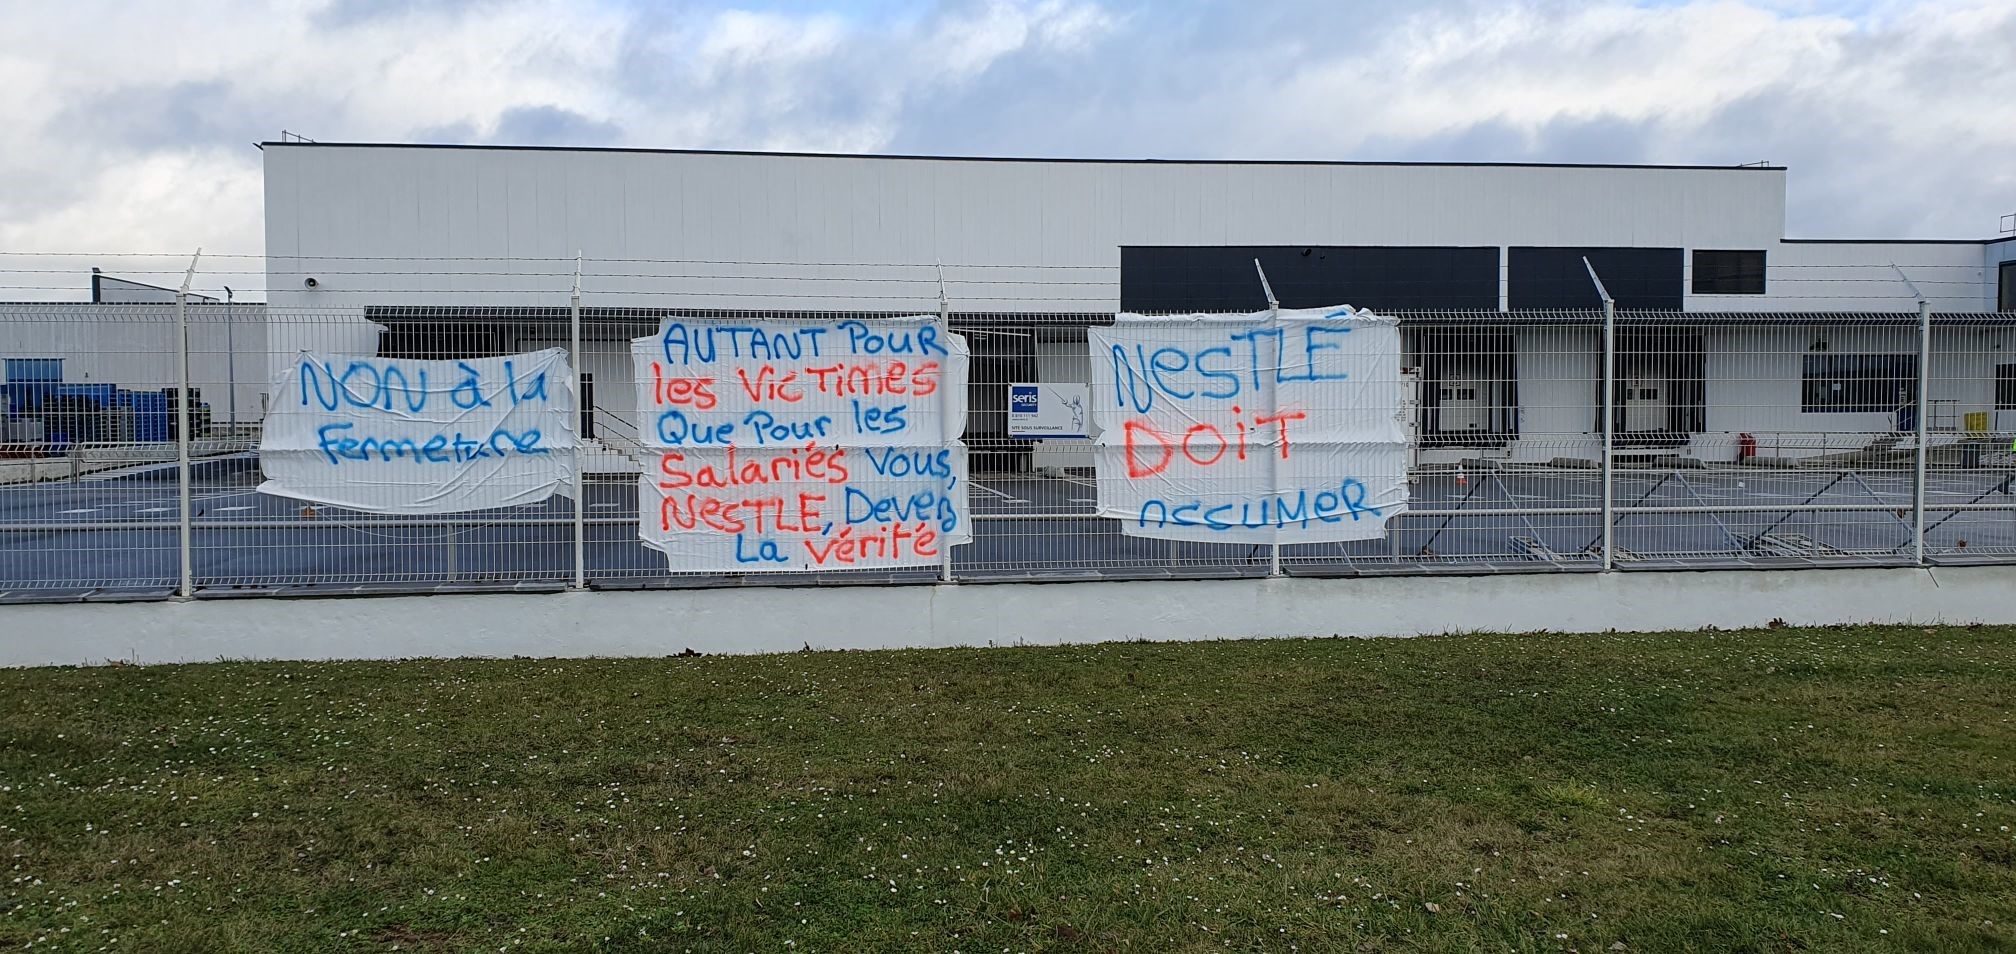 NON à la
Fermeture
AUTANT POUR
les VicTimes
Que Pour les
Salariés Vous,
NesTLE, Devez
La Vérité
seris
SECURITY
SITE SOUS SURVEILLANCE
NesTLÉ
DOiT
ASSUMER